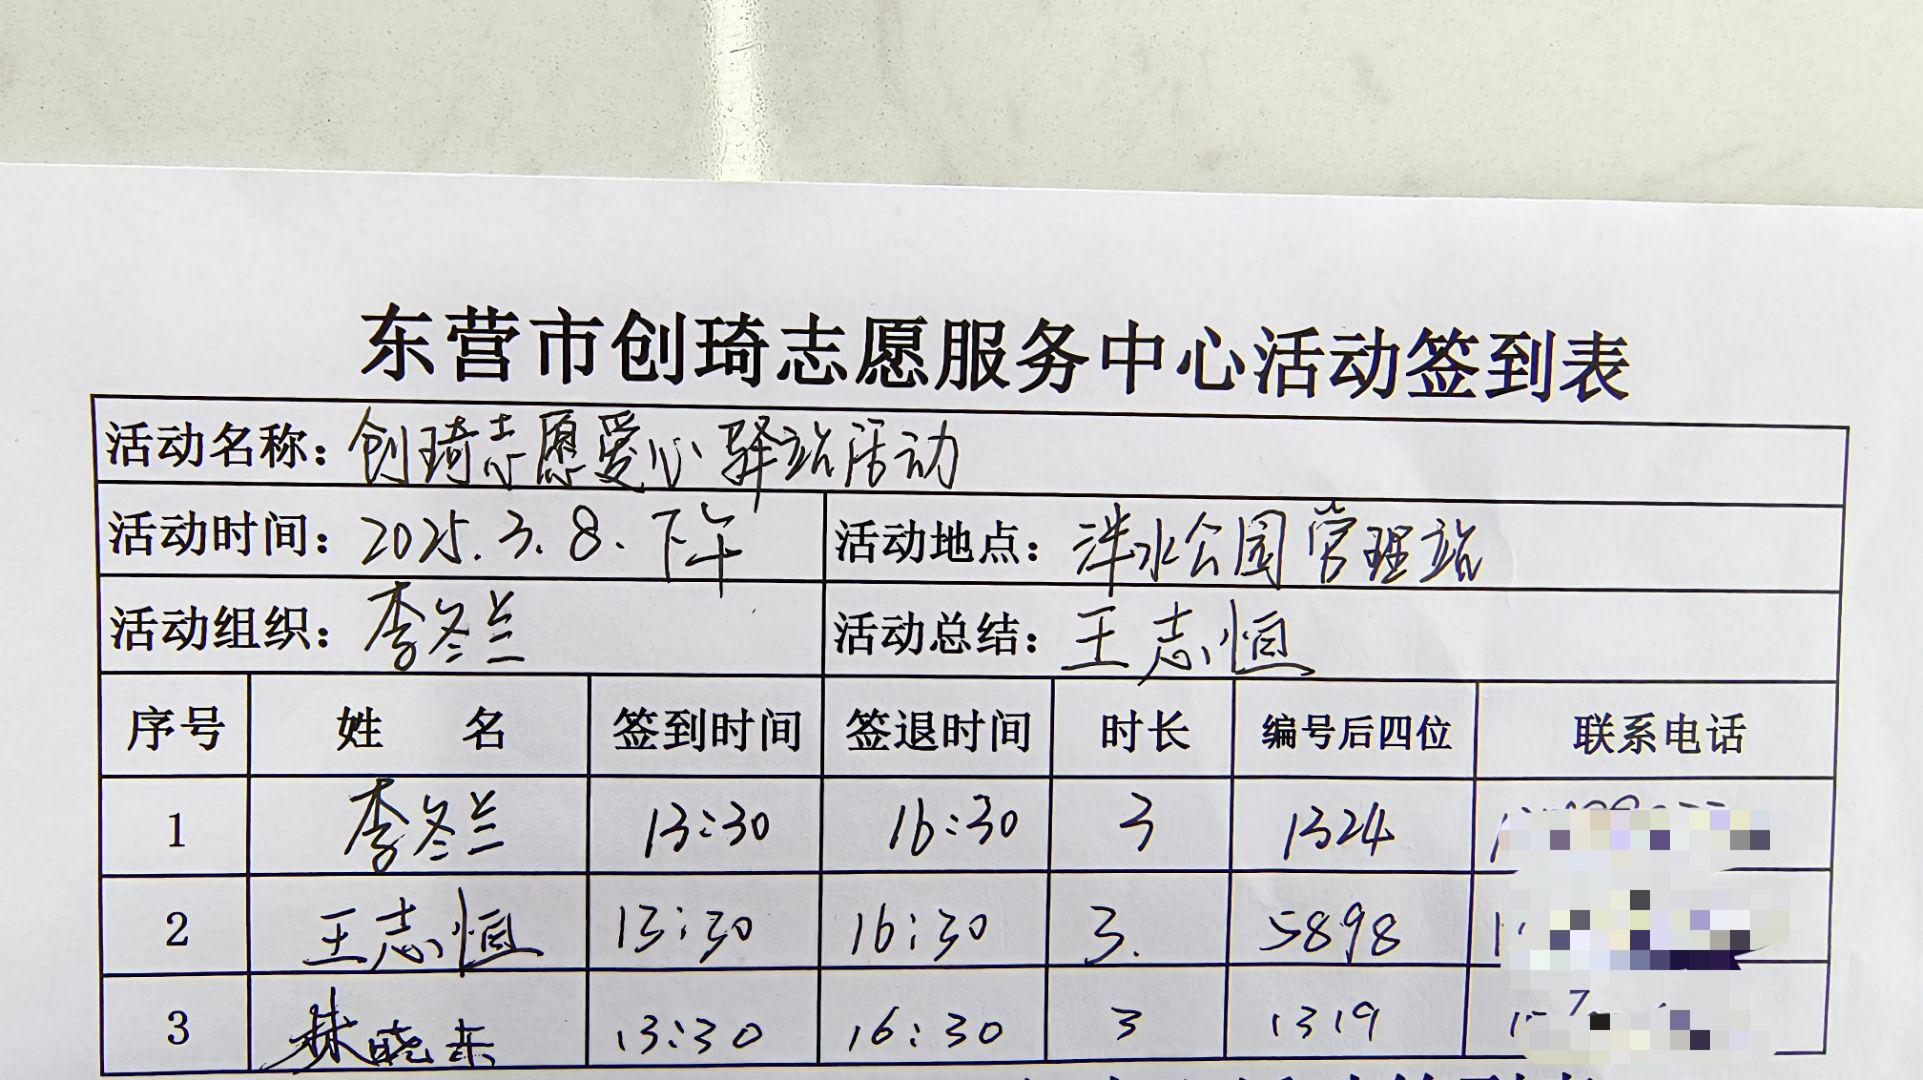 东营市创琦志愿服务中心活动签到表
活动名称：创琦志愿爱心驿站活动
活动时间：2025.3.8.下午 活动地点：洋水公园管理站
活动组织：李冬兰 活动总结：王志恒
序号 姓名 签到时间 签退时间 时长 编号后四位 联系电话
1 李冬兰 13:30 16:30 3 1324
2 王志恒 13:30 16:30 3. 5898
3 林晓东 13:30 16:30 3 1319